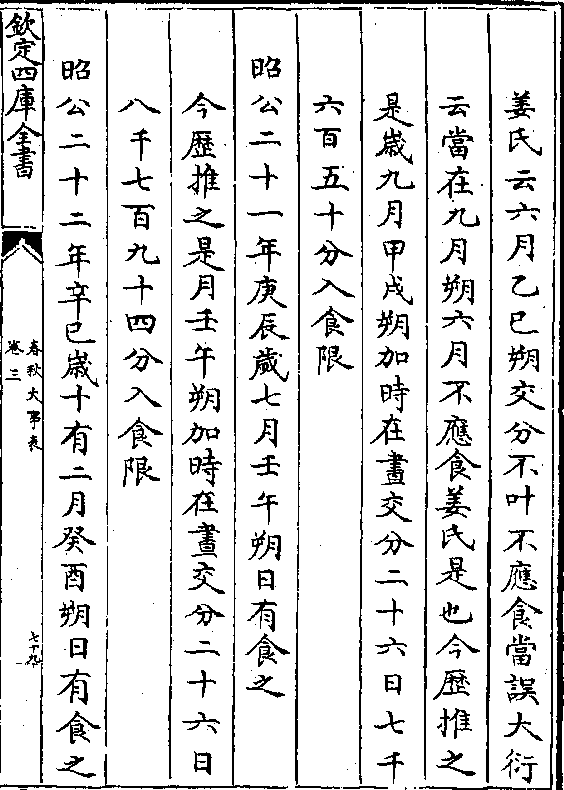 姜氏云六月乙巳朔交分不叶不應食當誤大衍
云當在九月朔六月不應食姜氏是也今歷推之
是歲九月甲戌朔加時在晝交分二十六日七千
六百五十分入食限
昭公二十一年庚辰歲七月壬午朔日有食之
今歷推之是月壬午朔加時在晝交分二十六日
八千七百九十四分入食限
昭公二十二年辛巳歲十有二月癸酉朔日有食之
欽定四庫全書
春秋大事表
卷三
七十九